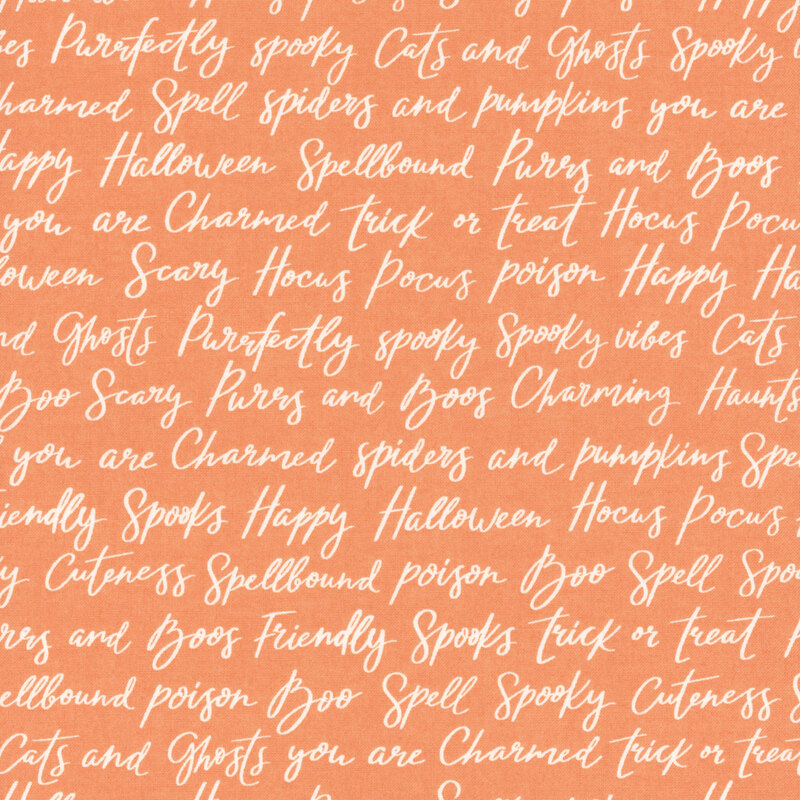 es Purrfectly spooky Cats and Ghosts Spooky
harmed Spell spiders and pumpkins you are
appy Halloween Spellbound Purrs and Boos
you are Charmed trick or treat Hocus Pocus
loween Scary Hocus Pocus poison Happy Ha
nd Ghosts Purrfectly spooky Spooky vibes Cats
Boo Scary Purrs and Boos Charming Haunts
you are Charmed spiders and pumpkins Spe
iendly Spooks Happy Halloween Hocus Pocus
y Cuteness Spellbound poison Boo Spell Spoo
rrs and Boos Friendly Spooks trick or treat P
pellbound poison Boo Spell Spooky Cuteness S
Cats and Ghosts you are Charmed trick or treat